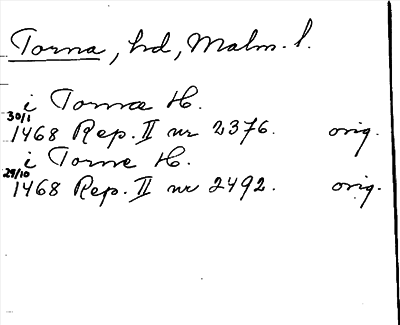 Torna, hd, Malm. l.
i Tornæ H.
30/1
1468 Rep. II nr 2376. orig.
i Torne H.
29/10
1468 Rep. II nr 2492. orig.